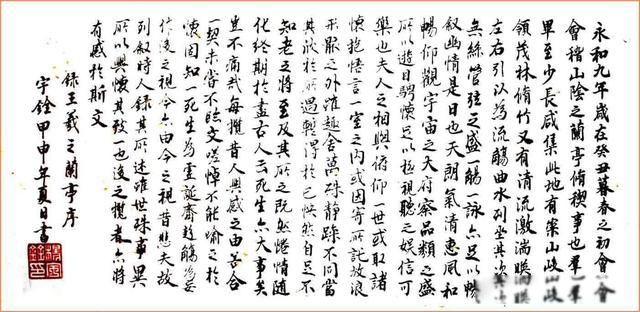 永和九年歲在癸丑暮春之初會
會稽山陰之蘭亭脩禊事也羣
畢至少長咸集此地有崇山峻
領茂林脩竹又有清流激湍暎
左右引以為流觴曲水列坐其次
無絲管弦之盛一觴一詠亦足以暢
敘幽情是日也天朗氣清惠風和
暢仰觀宇宙之大府察品類之盛
所以遊目騁懷足以極視聽之娛信可
樂也夫人之相與俯仰一世或取諸
懷抱悟言一室之內或因寄所託放浪
形骸之外雖趣舍萬殊靜躁不同當
其欣於所遇暫得於己怏然自足不
知老之將至及其所之既惓情隨
化終期於盡古人云死生亦大事矣
豈不痛哉每攬昔人興感之由若合
一契未嘗不臨文嗟悼不能喻之於
懷固知一死生為虛誕齊彭殤為妄
作後之視今亦由今之視昔悲夫故
列敘時人錄其所述雖世殊事異
所以興懷其致一也後之攬者亦將
有感於斯文
錄王羲之蘭亭序
宇銓甲申年夏日書